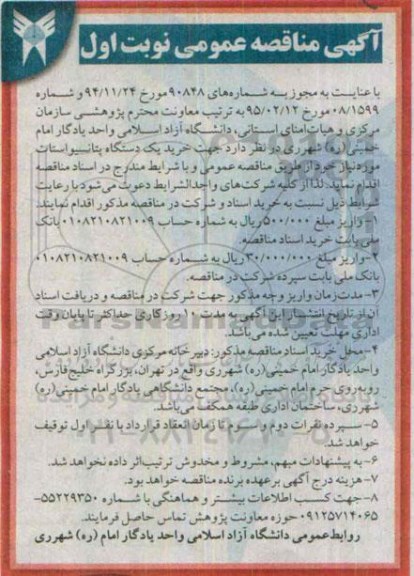 آگهی مناقصه عمومی نوبت اول
با عنایت به مجوز به شماره‌های ۹۰۸۴۸ مورخ ۹۴/۱۱/۲۴ و شماره
۰۸/۱۵۹۹ مورخ ۹۵/۰۲/۱۲ به ترتیب معاونت محترم پژوهشی سازمان
مرکزی و هیات امنای استانی، دانشگاه آزاد اسلامی واحد یادگار امام
خمینی(ره) شهرری در نظر دارد جهت خرید یک دستگاه پتانسیواستات
مورد نیاز خود از طریق مناقصه عمومی و با شرایط مندرج در اسناد مناقصه
اقدام نماید. لذا از کلیه شرکت‌های واجدالشرایط دعوت می‌شود با رعایت
شرایط ذیل نسبت به خرید اسناد و شرکت در مناقصه مذکور اقدام نمایند.
۱- واریز مبلغ ۵۰۰/۰۰۰ ریال به شماره حساب ۰۱۰۸۲۱۰۸۲۱۰۰۹ بانک
ملی بابت خرید اسناد مناقصه.
۲- واریز مبلغ ۳۰/۰۰۰/۰۰۰ ریال به شماره حساب ۰۱۰۸۲۱۰۸۲۱۰۰۹
بانک ملی بابت سپرده شرکت در مناقصه.
۳- مدت زمان واریز وجه مذکور جهت شرکت در مناقصه و دریافت اسناد
آن از تاریخ انتشار این آگهی به مدت ۱۰ روز کاری حداکثر تا پایان وقت
اداری مهلت تعیین شده می‌باشد.
۴- محل خرید اسناد مناقصه مذکور: دبیرخانه مرکزی دانشگاه آزاد اسلامی
واحد یادگار امام خمینی(ره) شهرری واقع در تهران، بزرگراه خلیج فارس،
روبه‌روی حرم امام خمینی(ره)، مجتمع دانشگاهی یادگار امام خمینی(ره)
شهرری، ساختمان اداری طبقه همکف می‌باشد.
۵- سپرده نفرات دوم و سوم تا زمان انعقاد قرارداد با نفر اول توقیف
خواهد شد.
۶- به پیشنهادات مبهم، مشروط و مخدوش ترتیب اثر داده نخواهد شد.
۷- هزینه درج آگهی برعهده برنده مناقصه خواهد بود.
۸- جهت کسب اطلاعات بیشتر و هماهنگی با شماره ۵۵۲۲۹۳۵۰-
۰۹۱۲۵۷۱۴۰۶۵ حوزه معاونت پژوهش تماس حاصل فرمایند.
روابط عمومی دانشگاه آزاد اسلامی واحد یادگار امام (ره) شهرری